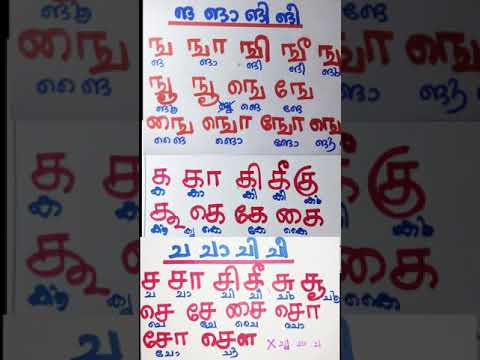 ങ ങാ ങി ങീ
ங ஙா ஙி ஙீ
ങ ങാ ങി ങീ ങു
ஙெ ஙே
ങൂ ങെ ങേ
ஙை ஙொ ஙோ
ങൈ ങൊ ങോ
க கா கி கீ கு
ക കാ കി കീ കു
கூ கெ கே கை
കൂ കൃ കേ കൈ
ച ചാ ചി ചീ
ச சா சி சீ சு சூ
ച ചാ ചി ചീ ചു ചൂ
செ சே சை சொ
ചെ ചേ ചൈ ചൊ
சோ சௌ
ചോ ചൗ